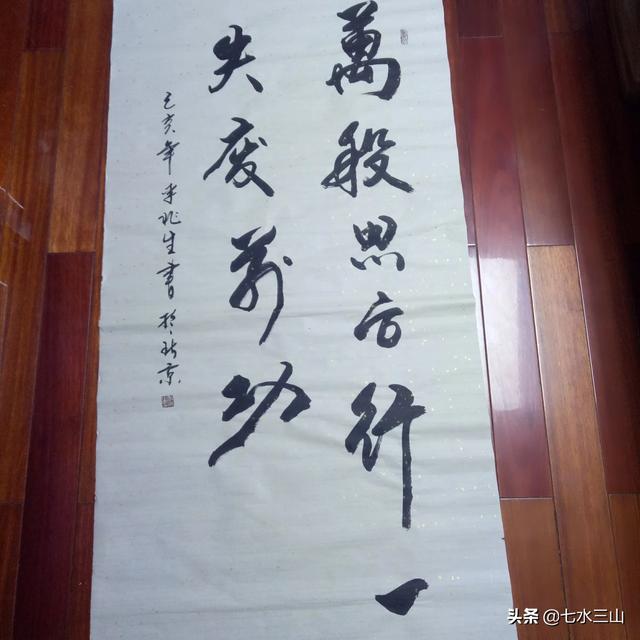 萬般思后行一
失废前功
己亥年生書於北京
头条 @七水三山